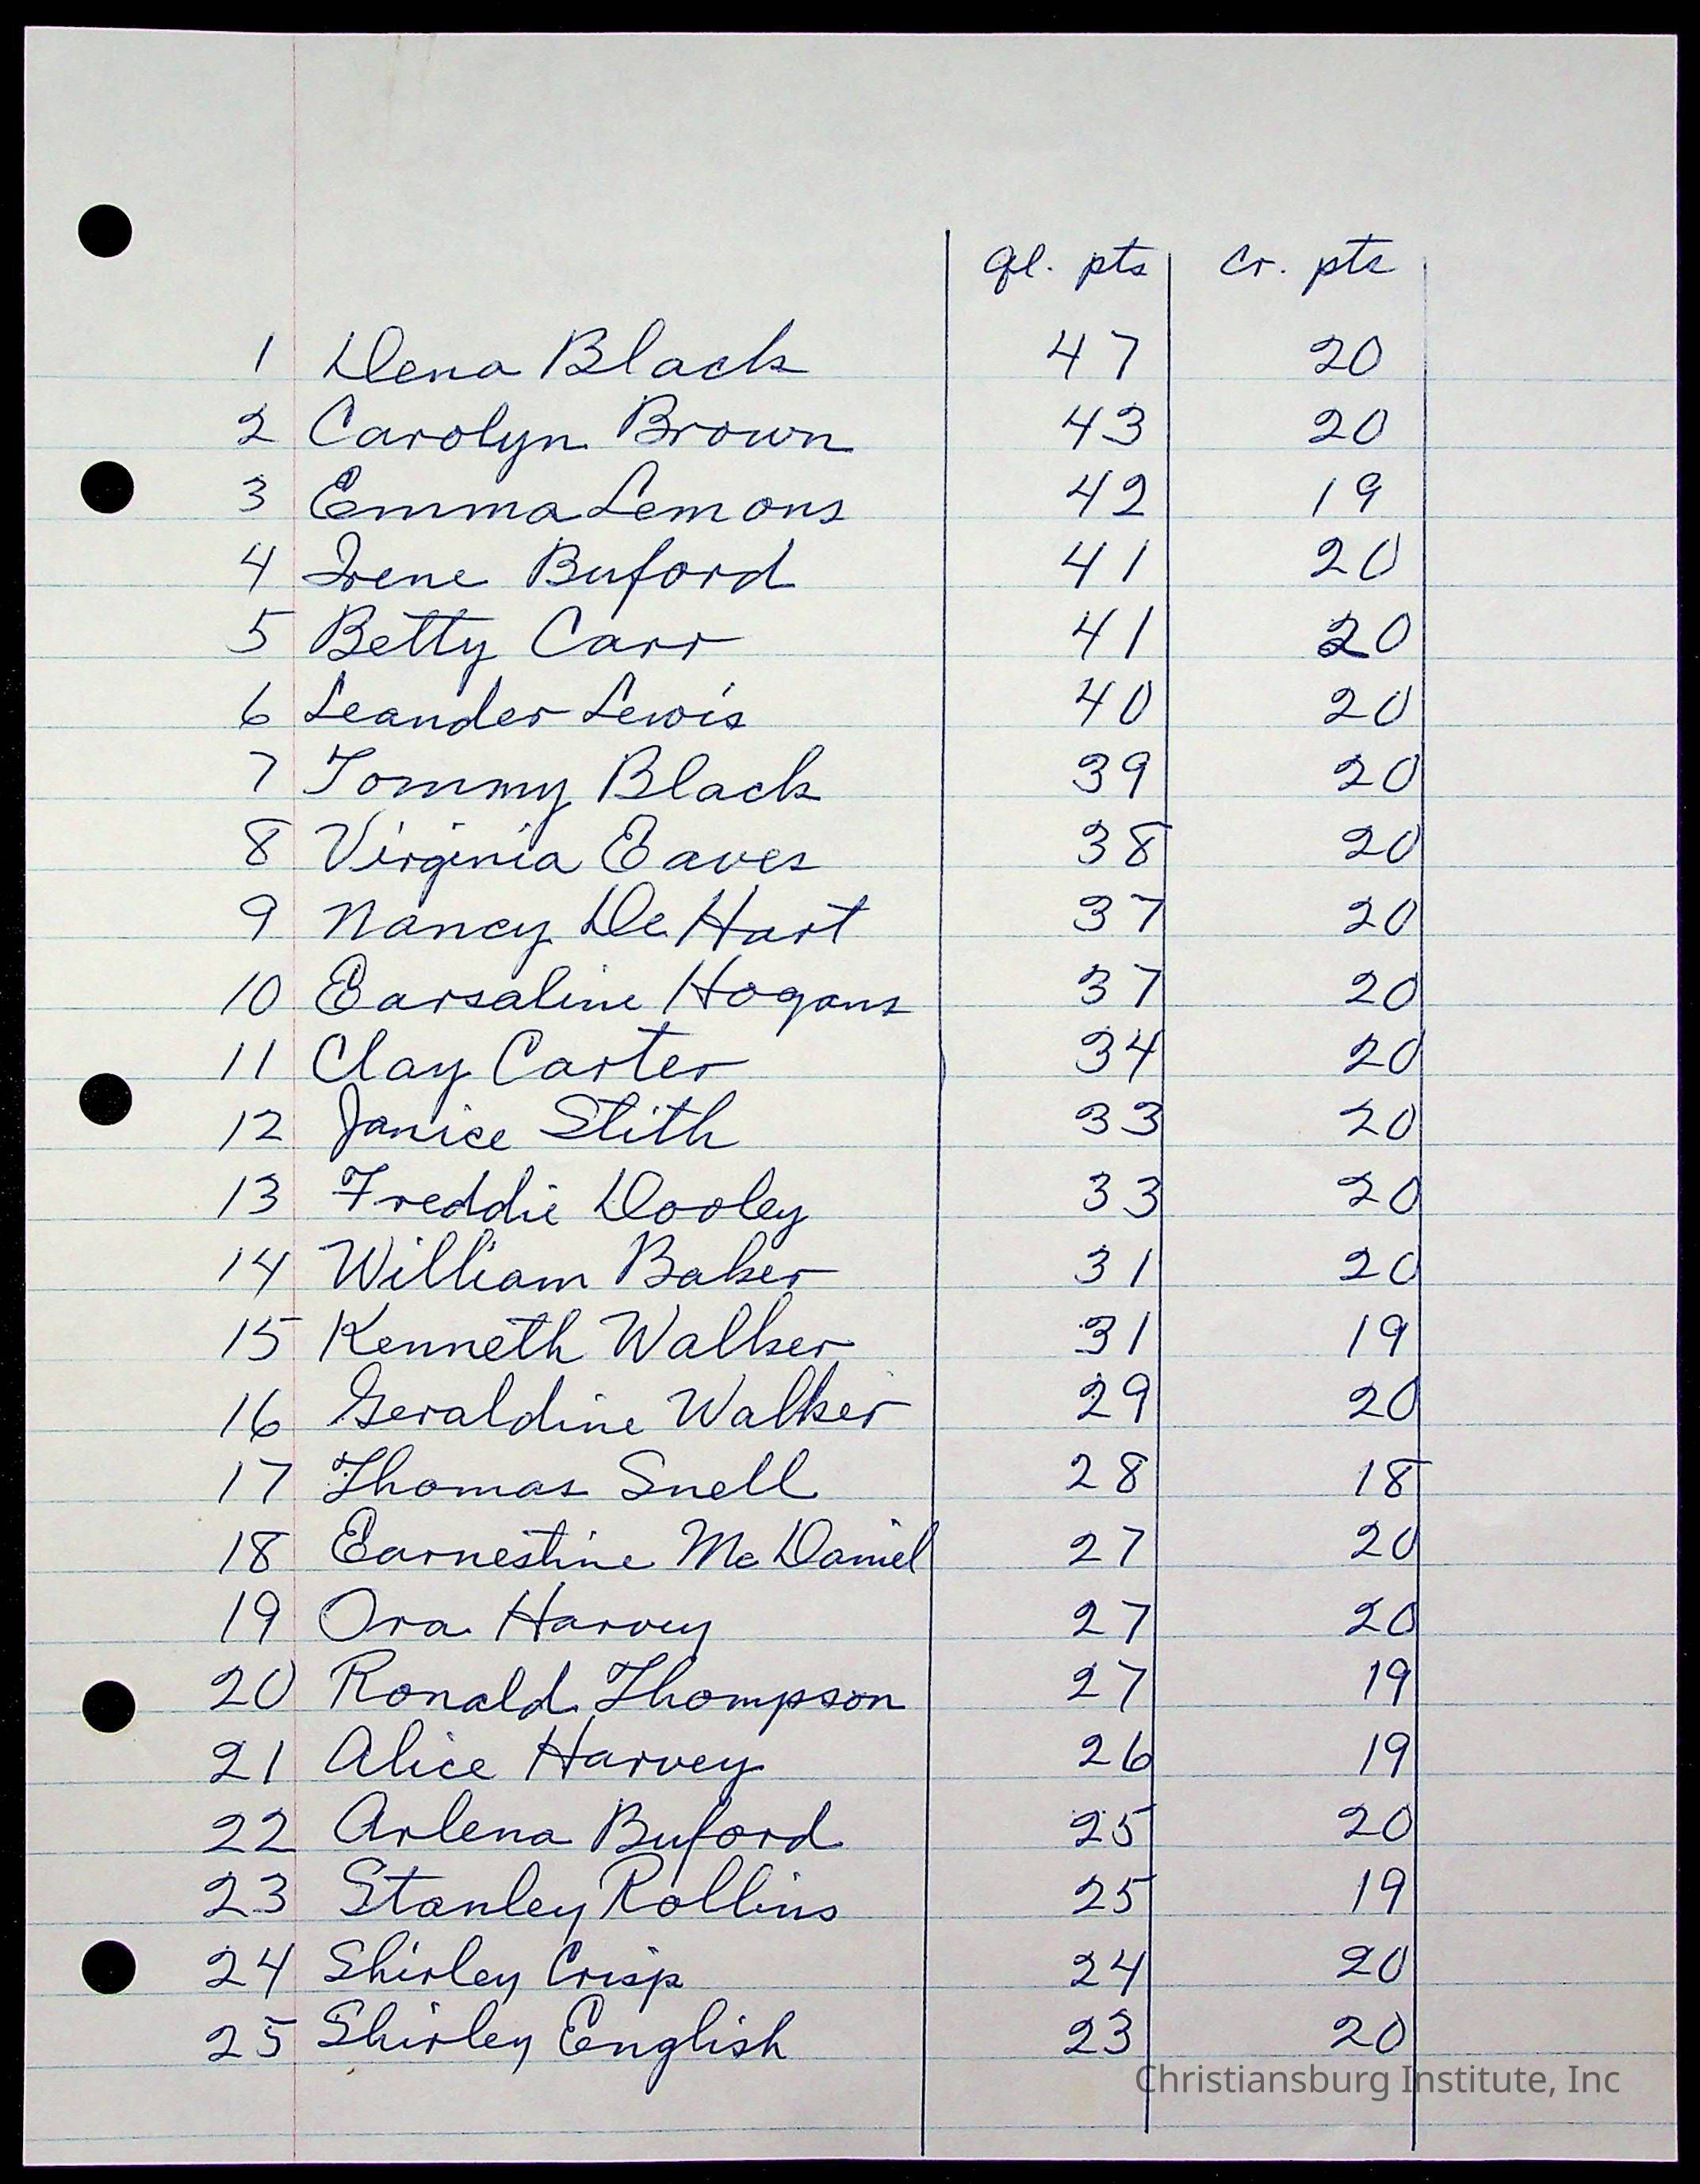 ql. pts cr. pts
1 Dena Black 47 20
2 Carolyn Brown 43 20
3 Emma Lemons 42 19
4 Irene Buford 41 20
5 Betty Carr 41 20
6 Leander Lewis 40 20
7 Tommy Black 39 20
8 Virginia Eaves 38 20
9 Nancy De Hart 37 20
10 Earsaline Hogans 37 20
11 Clay Carter 34 20
12 Janice Stith 33 20
13 Freddie Dooley 33 20
14 William Baker 31 20
15 Kenneth Walker 31 19
16 Geraldine Walker 29 20
17 Thomas Snell 28 18
18 Earnestine Mc Daniel 27 20
19 Ora Harvey 27 20
20 Ronald Thompson 27 19
21 Alice Harvey 26 19
22 Arlena Buford 25 20
23 Stanley Rollins 25 19
24 Shirley Crisp 24 20
25 Shirley English 23 20
Christiansburg Institute, Inc